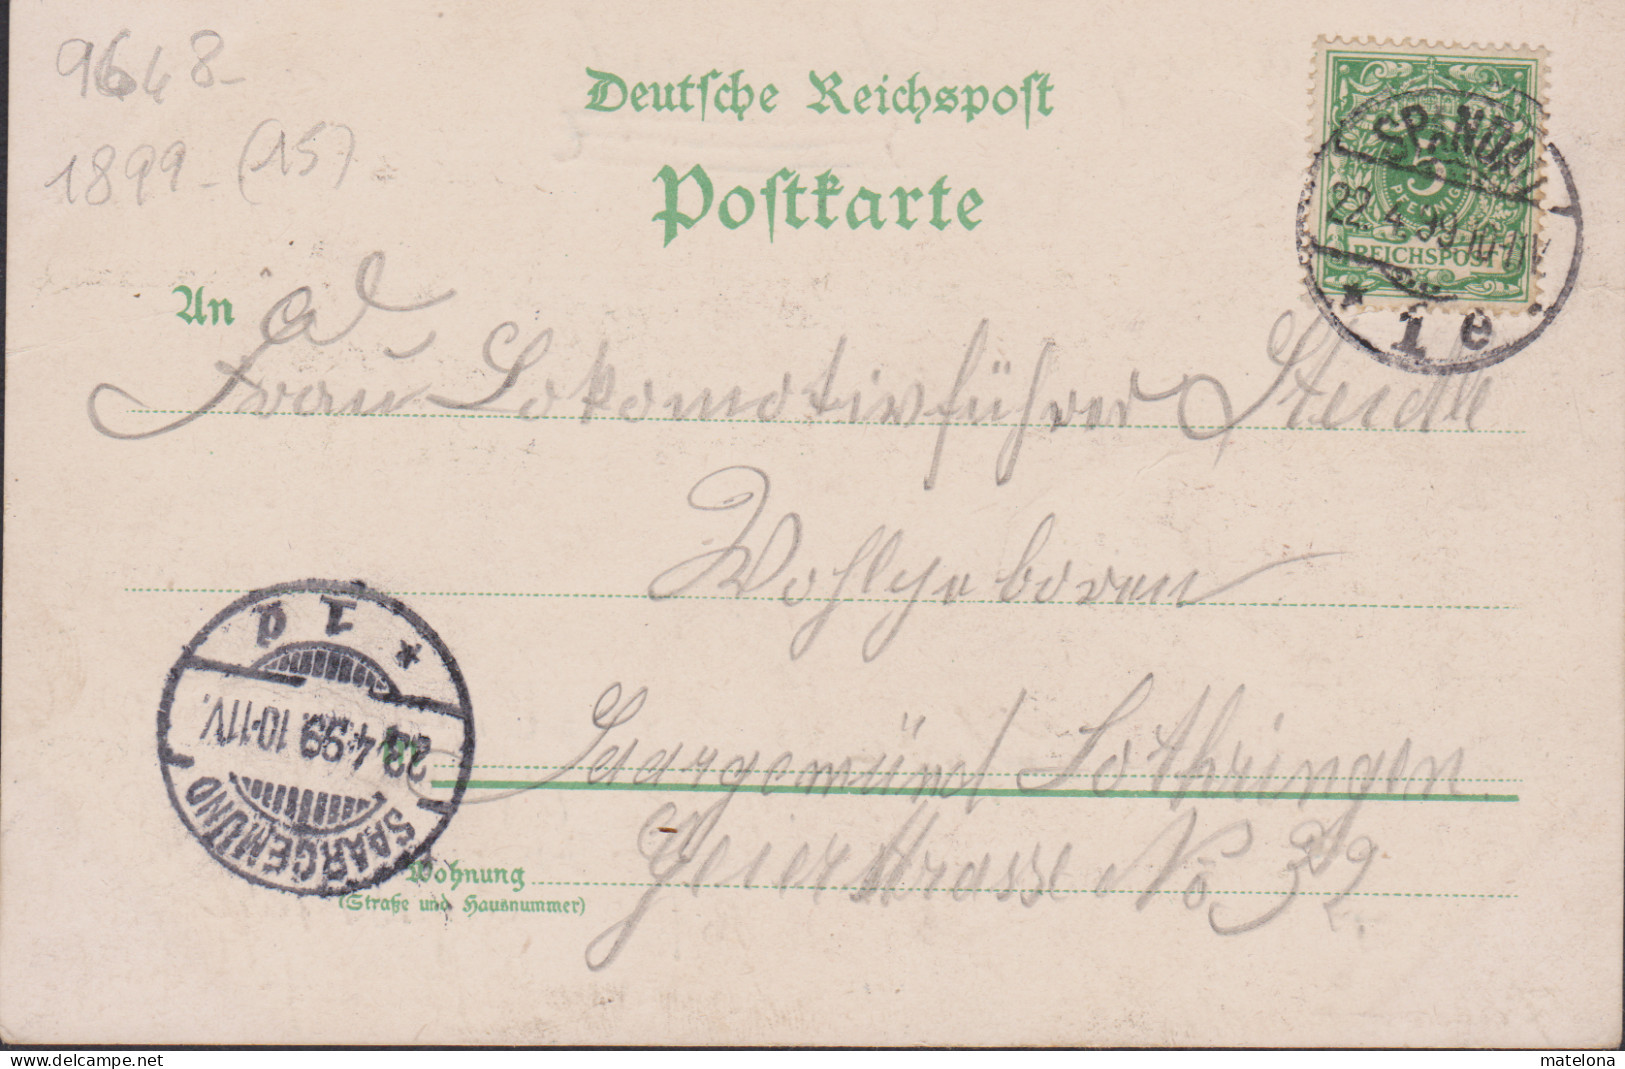 9648-
1899-(15)
Deutsche Reichspost
Postkarte
SPANDAU
22.4.99.10-11V
* 1 e
5
PFENNIG
REICHSPOST
An
Frau Lokomotivführer Steidle
Wohlgeboren
Saargemünd Lothringen.
Geierstrasse No 32.
Wohnung
(Straße und Hausnummer)
SAARGEMÜND
23.4.99.10-11V.
* 1 d
matelona